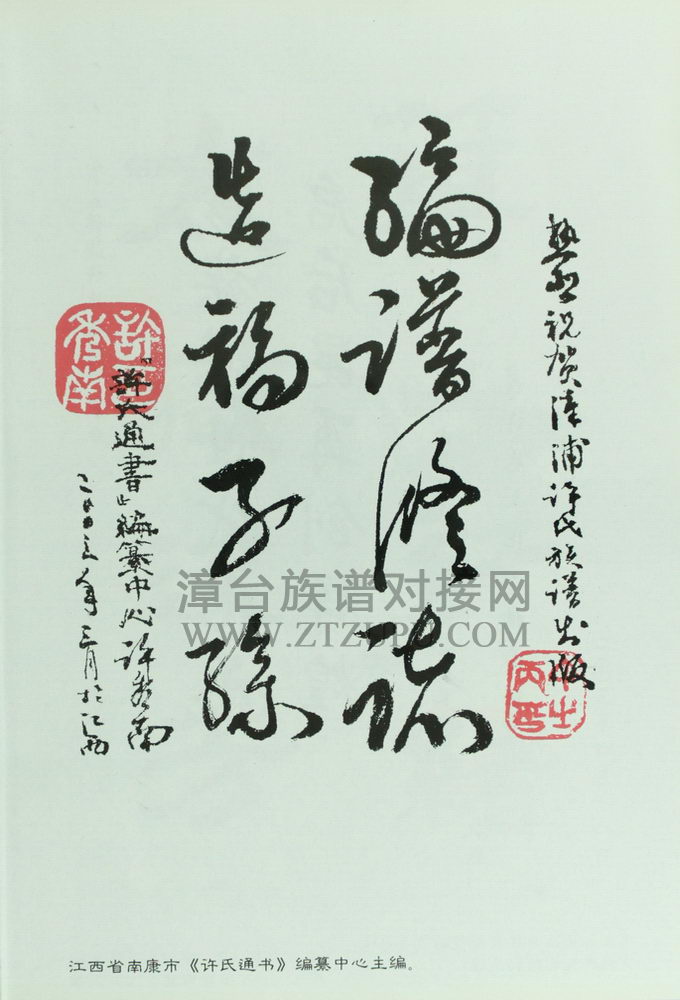 热烈祝贺漳浦许氏族谱出版
编谱修志
造福子孙
《許氏通書》编纂中心许秀南
二〇〇三年三月於江西
許
秀南
漳台族谱对接网
WWW.ZTZUPU.COM
江西省南康市《许氏通书》编纂中心主编。